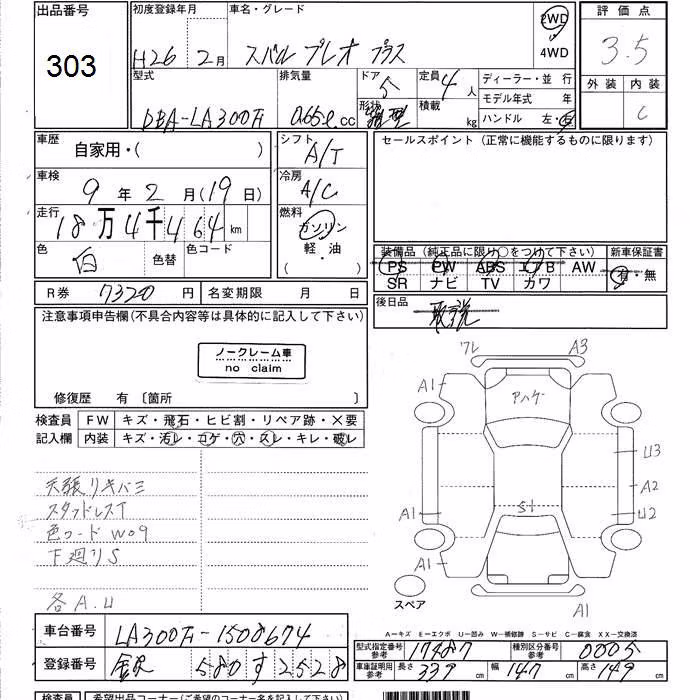 出品番号
303
初度登録年月
H26年 2月
車名・グレード
スバル プレオ プラス
2WD
4WD
評価点
3.5
外装 内装
C
型式
DBA-LA300F
排気量
0.65ℓ cc
ドア
5
形状
定員
4人
積載
kg
ディーラー・並行
モデル年式 年
ハンドル 左・右
車歴
自家用・( )
車検
9年2月(19日)
走行
18万4千464km
色
白
色替
色コード
シフト
A/T
冷房
A/C
燃料
ガソリン
軽・油
( )
セールスポイント (正常に機能するものに限ります)
装備品 (純正品に限り○をつけて下さい)
PS PW ABS エアB AW
SR ナビ TV カワ
新車保証書
有・無
R券 7320円
名変期限 月 日
後日品
取説
注意事項申告欄(不具合内容等は具体的に記入して下さい)
ノークレーム車
no claim
修復歴 有 〔箇所 〕
検査員
記入欄
FW キズ・飛石・ヒビ割・リペア跡・X要
内装 キズ・汚レ・コゲ・穴・スレ・キレ・破レ
天張リキバミ
スタッドレスT
色コード W09
下廻りS
各A.U
ワレ
A3
A1
アハゲ
U3
A2
A1
S1
U2
A1
A1
スペア
A-キズ E-エクボ U-凹み W-補修跡 S-サビ C-腐食 XX-交換済
車台番号
LA300F-1508674
登録番号
金沢 580 す 2528
型式指定番号
参考
17487
種別区分番号
参考
0005
車庫証明用
参考
長さ 339cm
幅 147cm
高さ 149cm
検査員
希望出品コーナー(ご希望のコーナー名を記入して下さい)